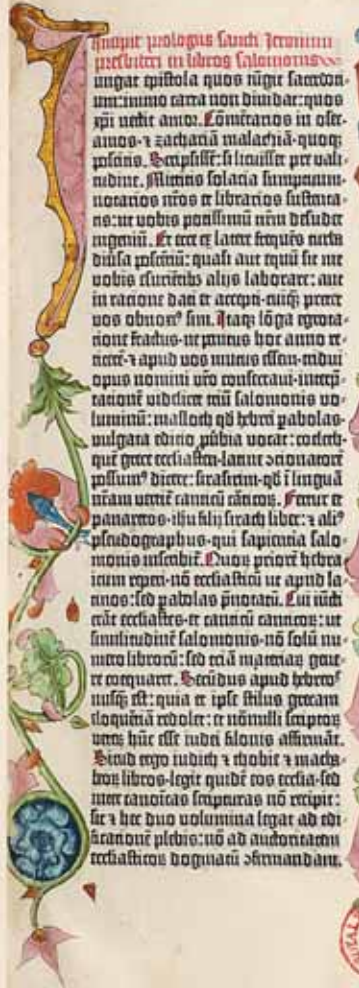 Incipit prologus sancti Jeronimi
presbiteri in libros salomonis
Iungat epistola quos iūgit sacerdoti-
um: immo carta non diuidat: quos
xp̄i nectit amor. Cōmētarios in osee-
amos-⁊ zachariā malachiā-quoq̄
poscitis. Scripsissē: si licuisset pre vali-
tudine. Mittitis solacia sumptuum-
notarios nr̄os et librarios sustenta-
tis: ut vobis potissimū nr̄m desudet
ingeniū. Et ecce ex latere frequēs turba
diūsa poscētiū: quasi aut equū sit me
vobis esuriētib⁹ alijs laborare: aut
in racione dati et accepti-cuiq̄ preter
vos obnoxi⁹ sim. Itaq̄ lōga egrota-
tione fractus-ne penitus hoc anno re-
ticerē-⁊ apud vos mutus essem-tridui
opus nomini vr̄o consecraui-interp̄-
tationē videlicet triū salomonis vo-
luminū: masloth qd̄ hebrei pabolas-
vulgata editio pūbia vocat: coeleth-
quē grece ecclesiasten-latine ɔcionatorē
possum⁹ dicere: sirasirim-qd̄ ī linguā
nr̄am vertit̄ canticū cāticoꝝ. Fertur et
panaretos-ihu filij sirach liber: ⁊ ali⁹
pseudographus-qui sapientia salo-
monis inscribit̄. Quoꝝ priorē hebra-
icum repperi-nō ecclesiasticū ut apud la-
tinos: sed pabolas p̄notatū. Cui iūcti
erāt ecclesiastes-et canticū canticoꝝ: ut
similitudinē salomonis-nō solū nu-
mero librorū: sed etiā materiaꝝ gene-
re coequaret. Secūdus apud hebreos
nusq̄ est: quia et ipse stilus grecam
eloquētiā redolet: et nōnulli scriptoꝝ
veteꝝ hūc esse iudei filonis affirmāt.
Sicut ergo iudith ⁊ thobie ⁊ macha-
beoꝝ libros-legit quidē eos ecclesia-sed
inter canoīcas scripturas nō recipit:
sic ⁊ hec duo volumina legat ad edi-
ficationē plebis: nō ad auctoritatem
ecclesiasticoꝝ dogmatū ɔfirmandam.